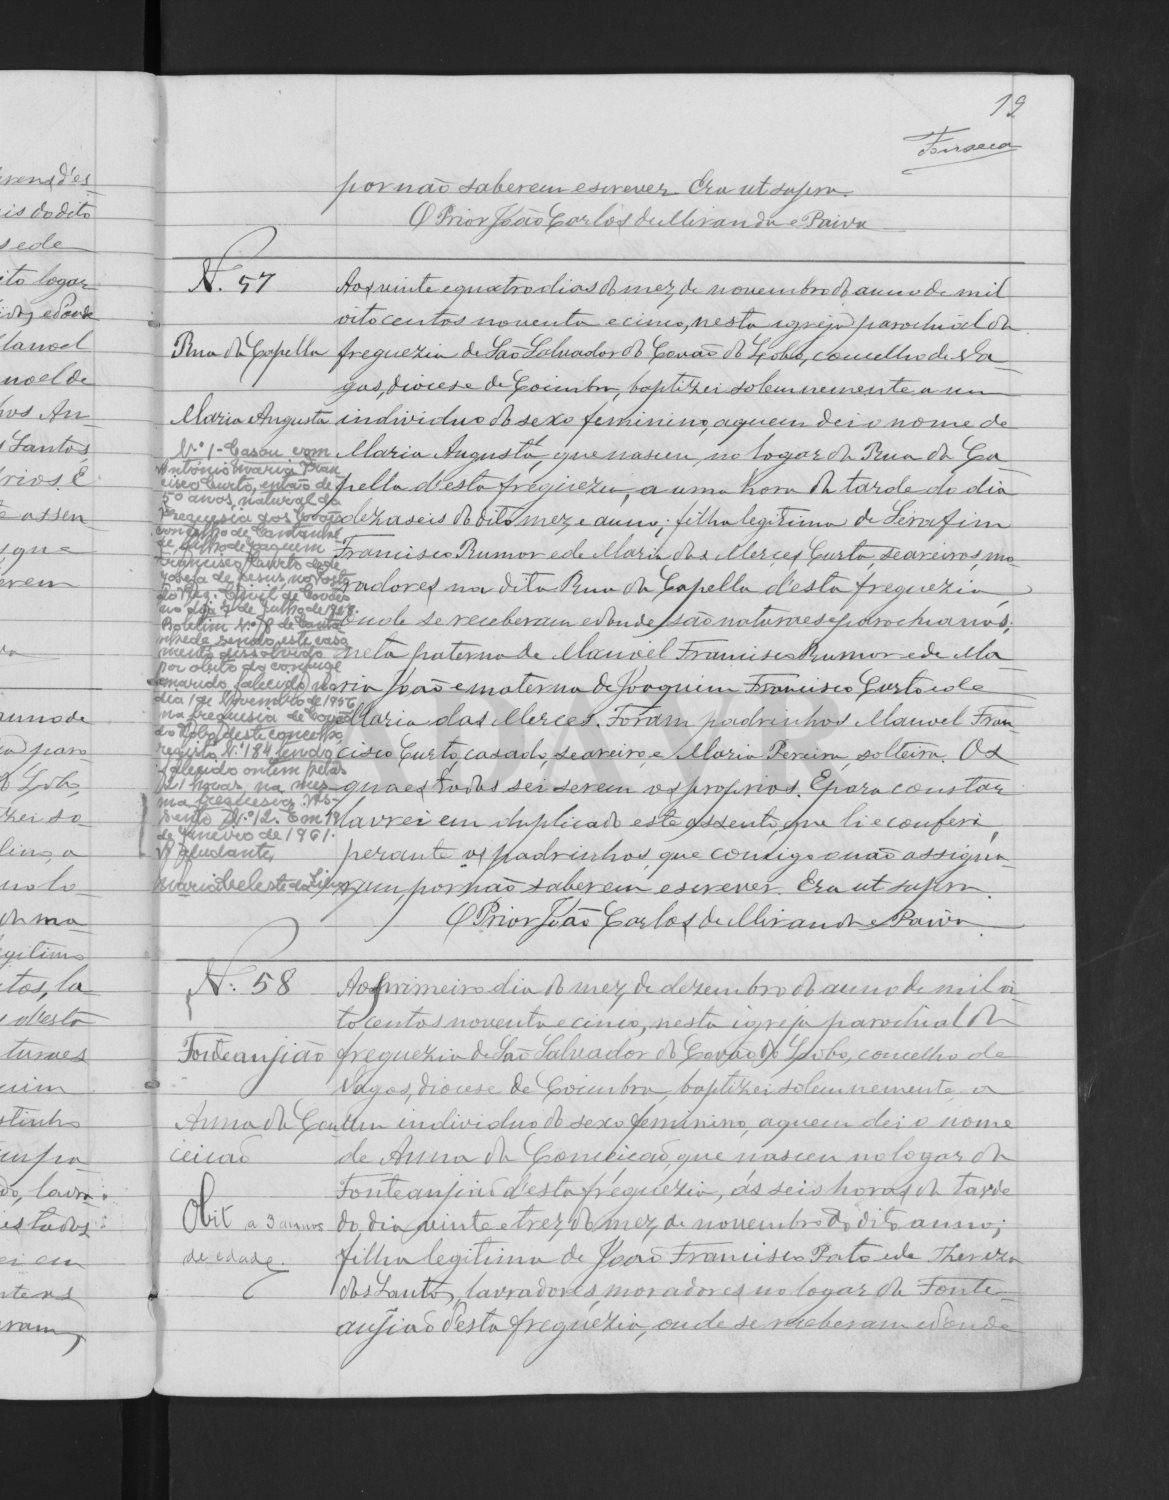 19
Fonseca
por não saberem escrever. Era ut supra.
O Prior João Carlos de Miranda e Paiva
N. 57
Rua da Capella
Maria Augusta
N.º 1 - Casou com
António Maria Fran
cisco Curto, então de
50 anos, natural da
freguesia dos Covões
concelho de Cantanhe
de, filho de Joaquim
Francisco Curto e de
de Jesus, no Posto
do Reg. Civil de Covões
no dia de Julho de
Boletim N.º 8 de Canta
nhede sendo este casa
mento dissolvido
por obito do conjuge
marido falecido no
dia 1 de Novembro de 1956
na freguesia de Covão
do Lobo, deste concelho,
registo N.º 184 tendo
falecido ontem pelas
21 horas, na mes
ma freguesia. As-
sento N.º 12. Em 19
de Janeiro de 1961.
O Ajudante,
Maria Celeste da Silva
Aos vinte e quatro dias do mez de novembro do anno de mil
oito centos noventa e cinco, nesta igreja parochial da
freguezia de São Salvador do Covão do Lobo, concelho de Va-
gos, diocese de Coimbra, baptizei solemnemente a um
individuo do sexo feminino, a quem dei o nome de
Maria Augusta, que nasceu no logar da Rua da Ca
pella d'esta freguezia, a uma hora da tarde do dia
dezaseis do dito mez e anno; filha legitima de Serafim
Francisco Rumor e de Maria das Merces Curta, seareiros, mo
radores na dita Rua da Capella d'esta freguezia,
onde se receberam e donde são naturaes e parochianos;
neta paterna de Manoel Francisco Rumor e de Ma
ria João e materna de Joaquim Francisco Curto e de
Maria das Merces. Foram padrinhos Manoel Fran
cisco Curto, casado, seareiro, e Maria Pereira, solteira. Os
quaes todos sei serem os proprios. E para constar
lavrei em duplicado este assento, que li e conferi,
perante os padrinhos, que comigo o não assigna
ram, por não saberem escrever. Era ut supra.
O Prior João Carlos de Miranda e Paiva.
N. 58
Fonteanjião
Anna da Con
ceicão
Obit a 3 annos
de edade.
Ao primeiro dia do mez de dezembro do anno de mil oi
to centos noventa e cinco, nesta igreja parochial da
freguezia de São Salvador do Covão do Lobo, concelho de
Vagos, diocese de Coimbra, baptizei solemnemente a
um individuo do sexo feminino, a quem dei o nome
de Anna da Conceição, que nasceu no logar da
Fonteanjião d'esta freguezia, ás seis horas da tarde
do dia vinte e trez do mez de novembro do dito anno;
filha legitima de João Francisco Pato e de Thereza
dos Santos, lavradores, moradores no logar da Fonte-
anjião d'esta freguezia, onde se receberam e donde